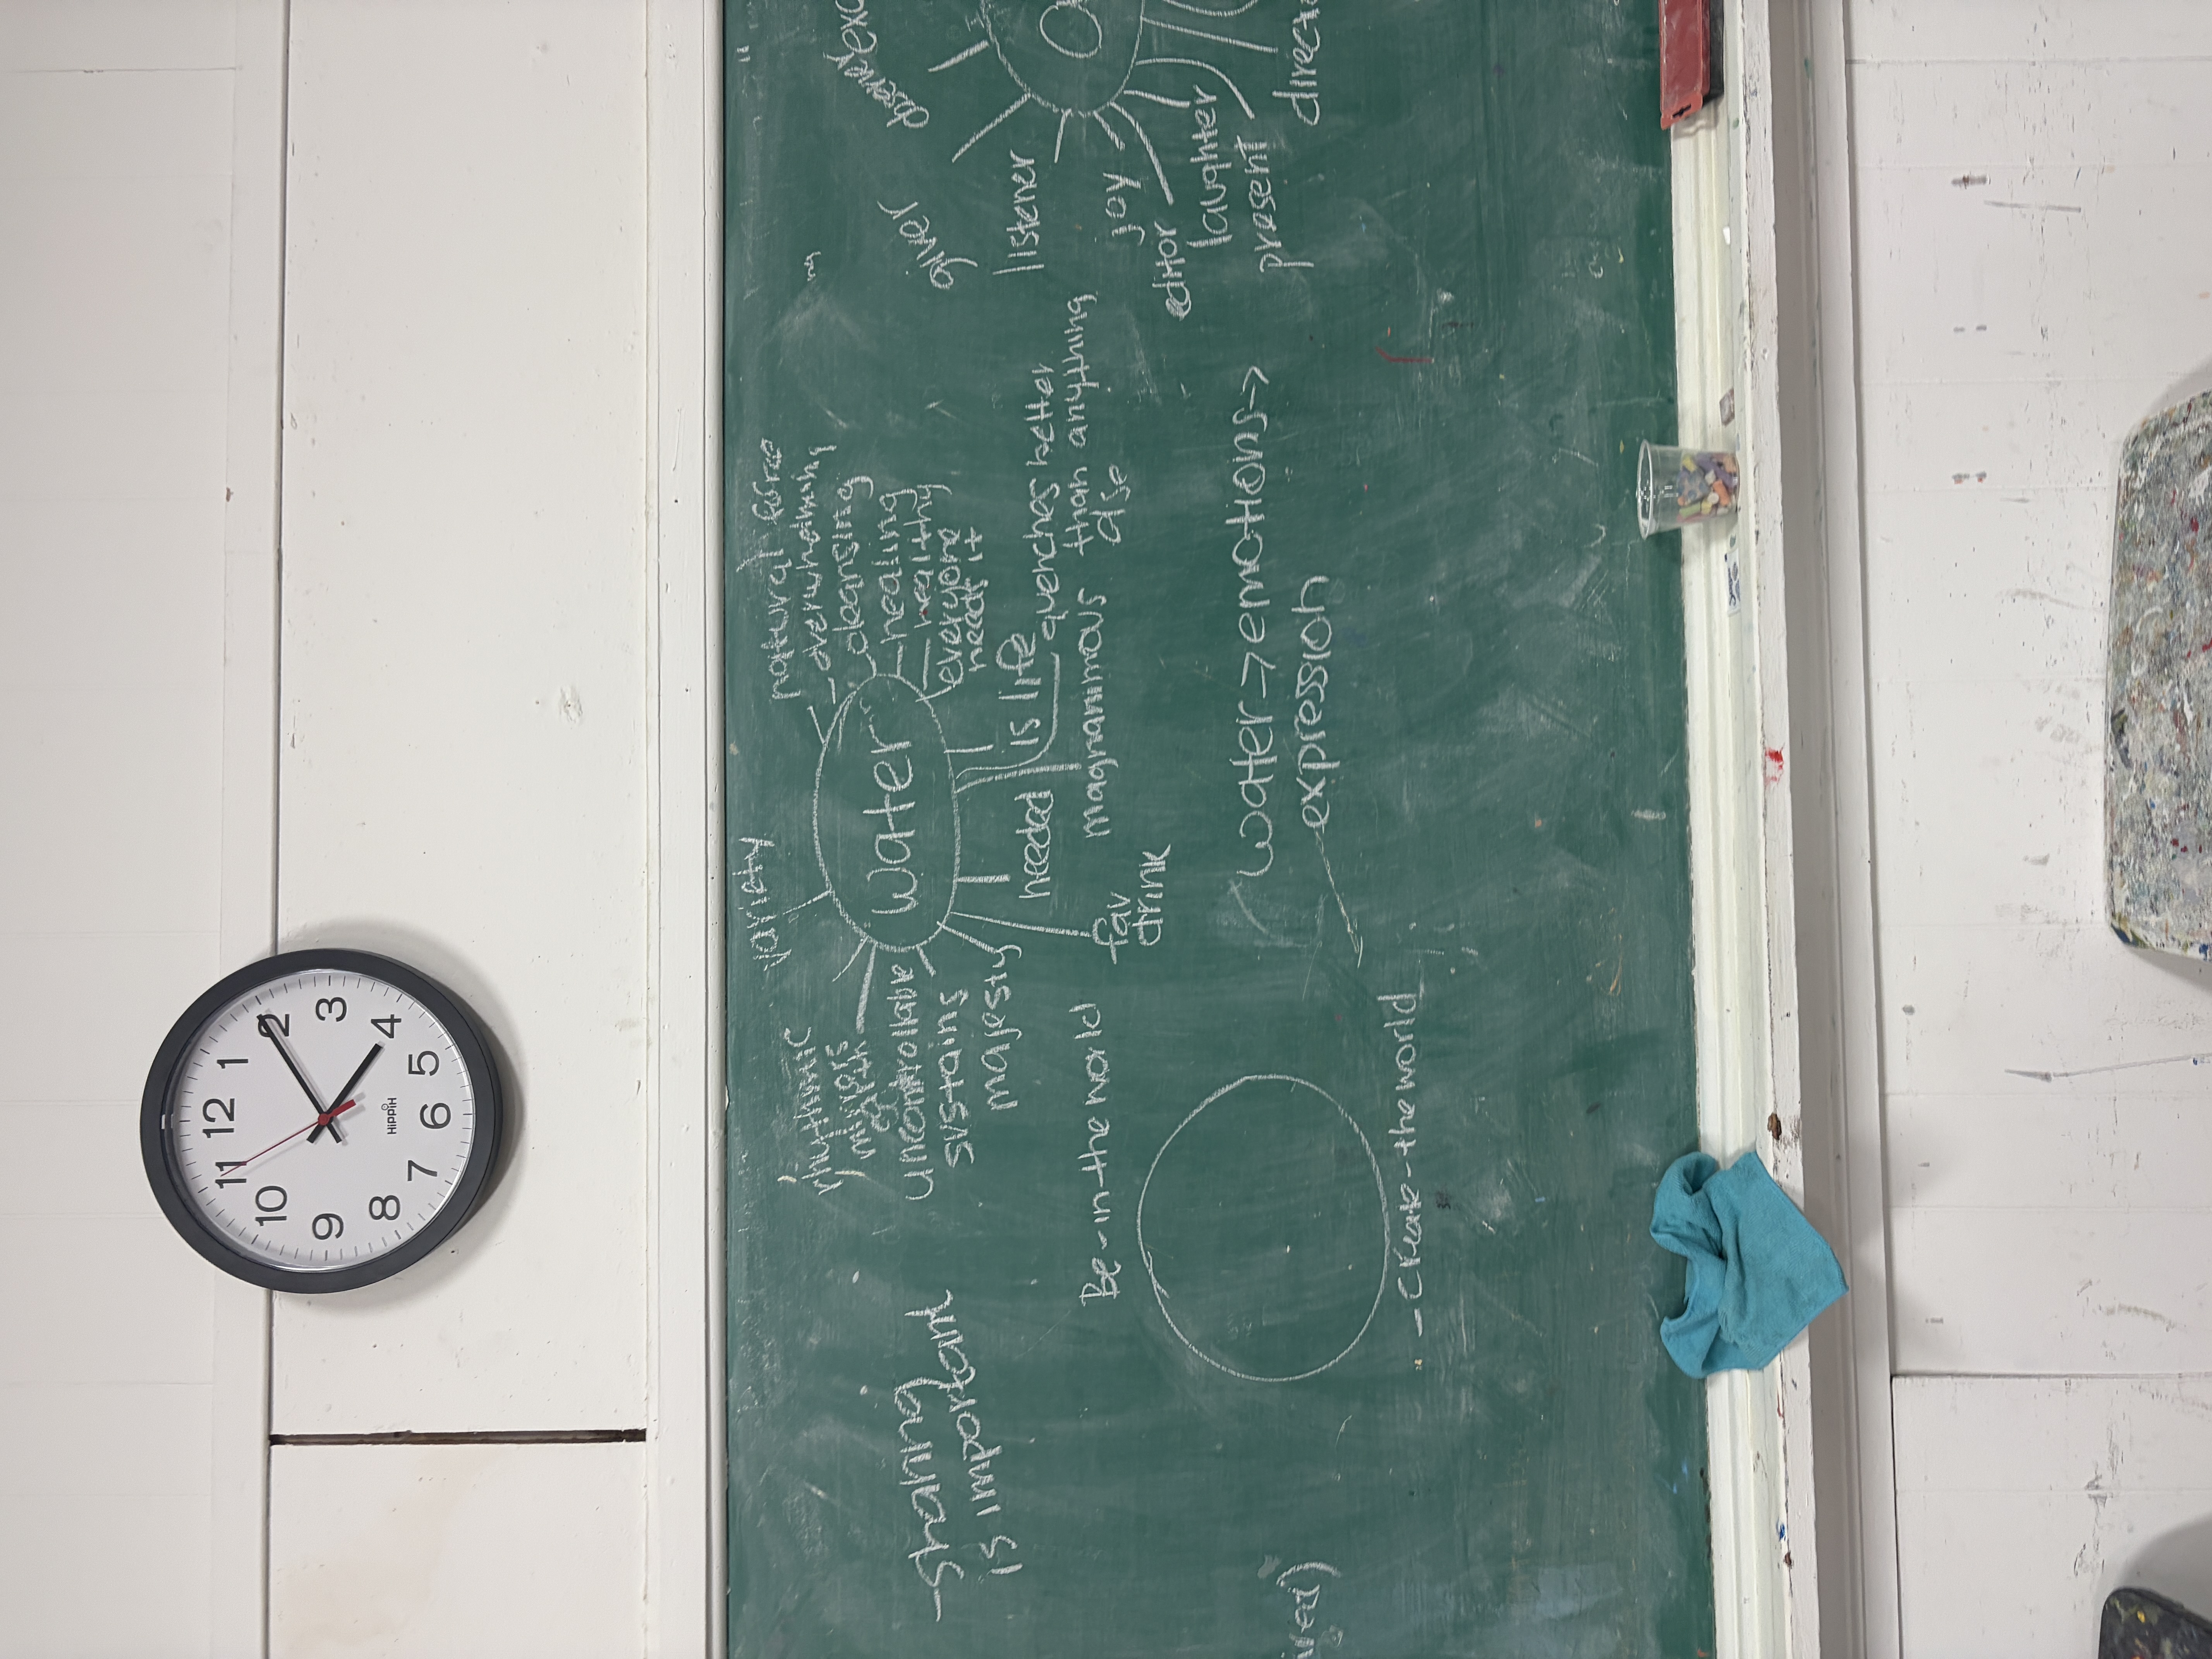 12
1
2
3
4
5
6
7
8
9
10
11
HIPPIH
-Sharing
is important
variety
natural force
overwhelming
cleansing
healing
healthy
everyone
needs it
water
rhythmic
uncontrollable
sustains
majesty
needed
is life
quenches better
than anything
else
magnanimous
fav
drink
Be-in-the world
-Create-the world
water->emotions->
expression
giver
listener
joy
editor
laughter
present